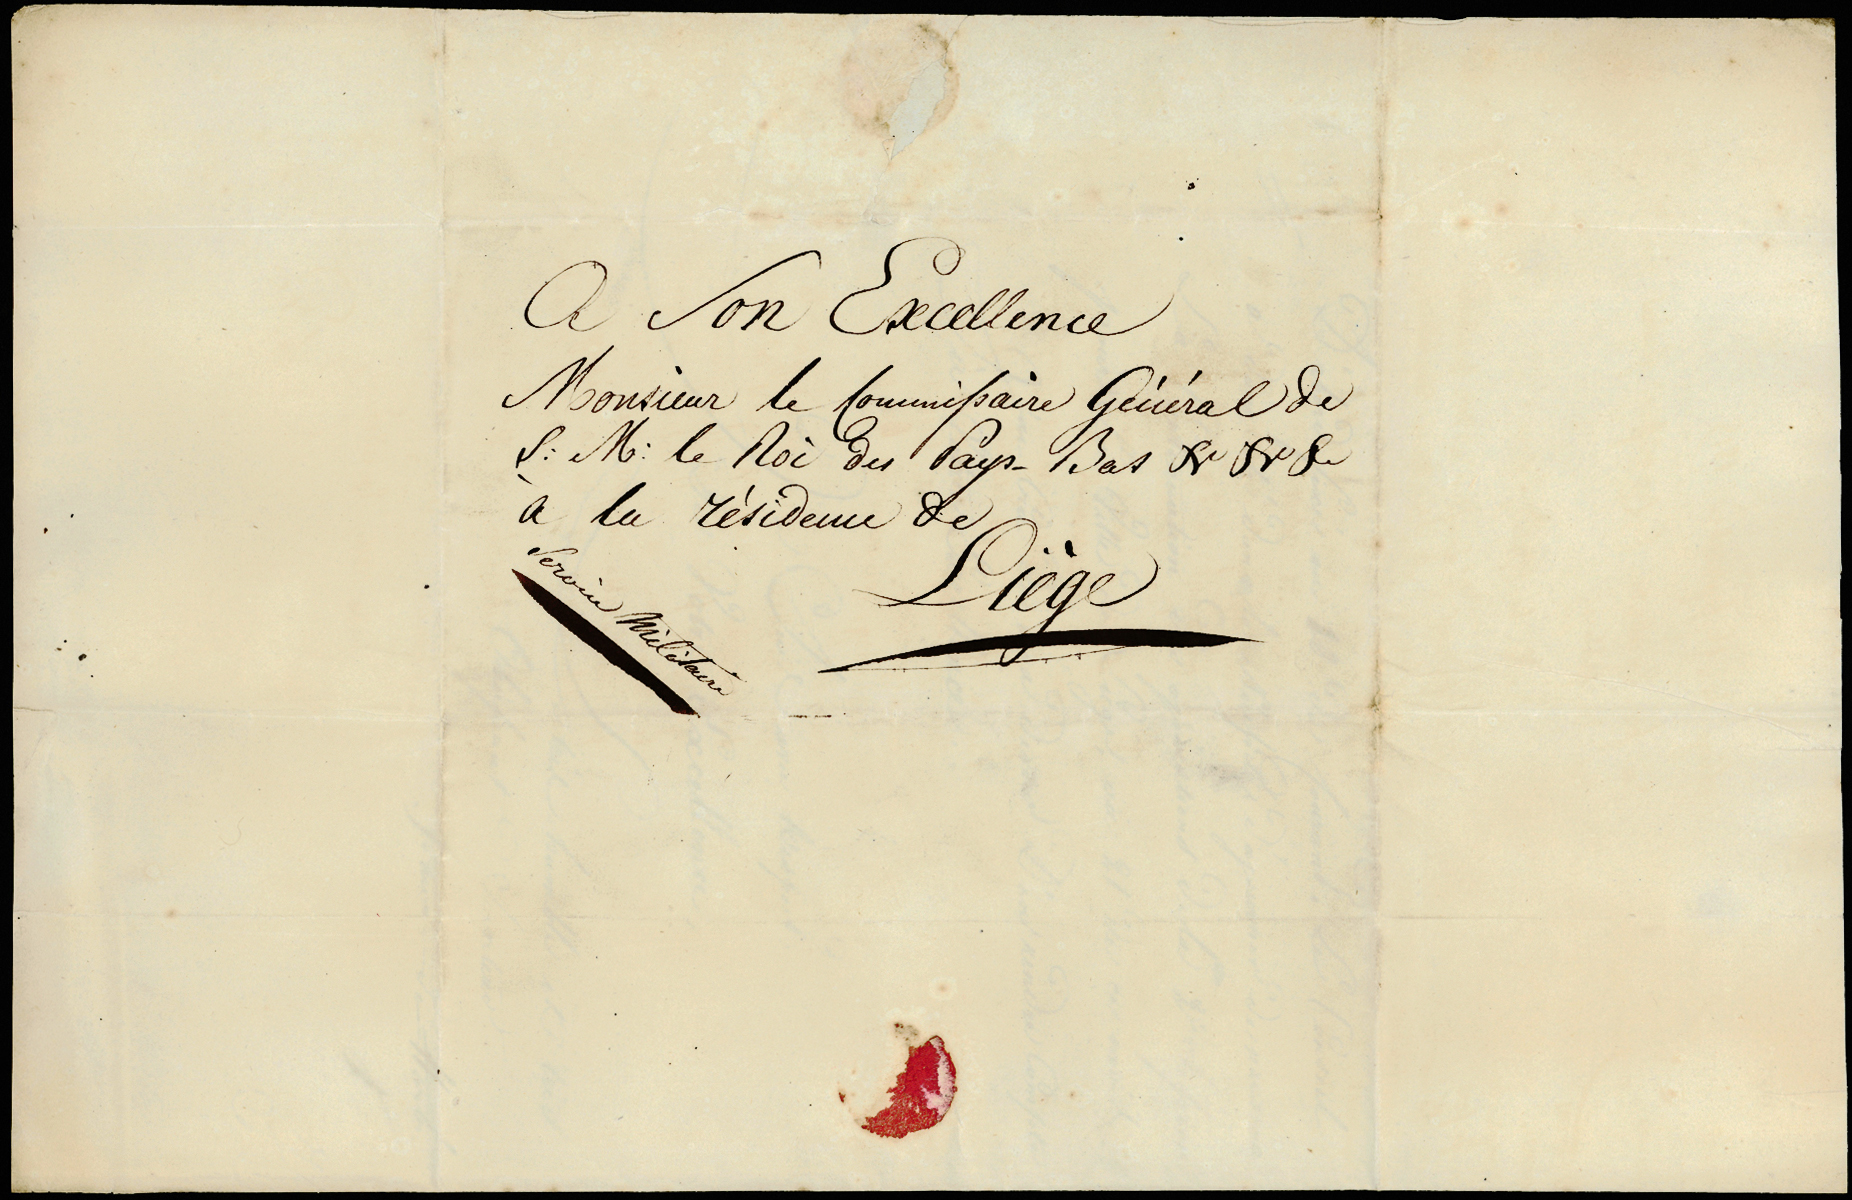 A Son Excellence
Monsieur le Commissaire Général de
S: M: le Roi des Pays-Bas &c &c &c
à la résidence de
Liège
Service Militaire